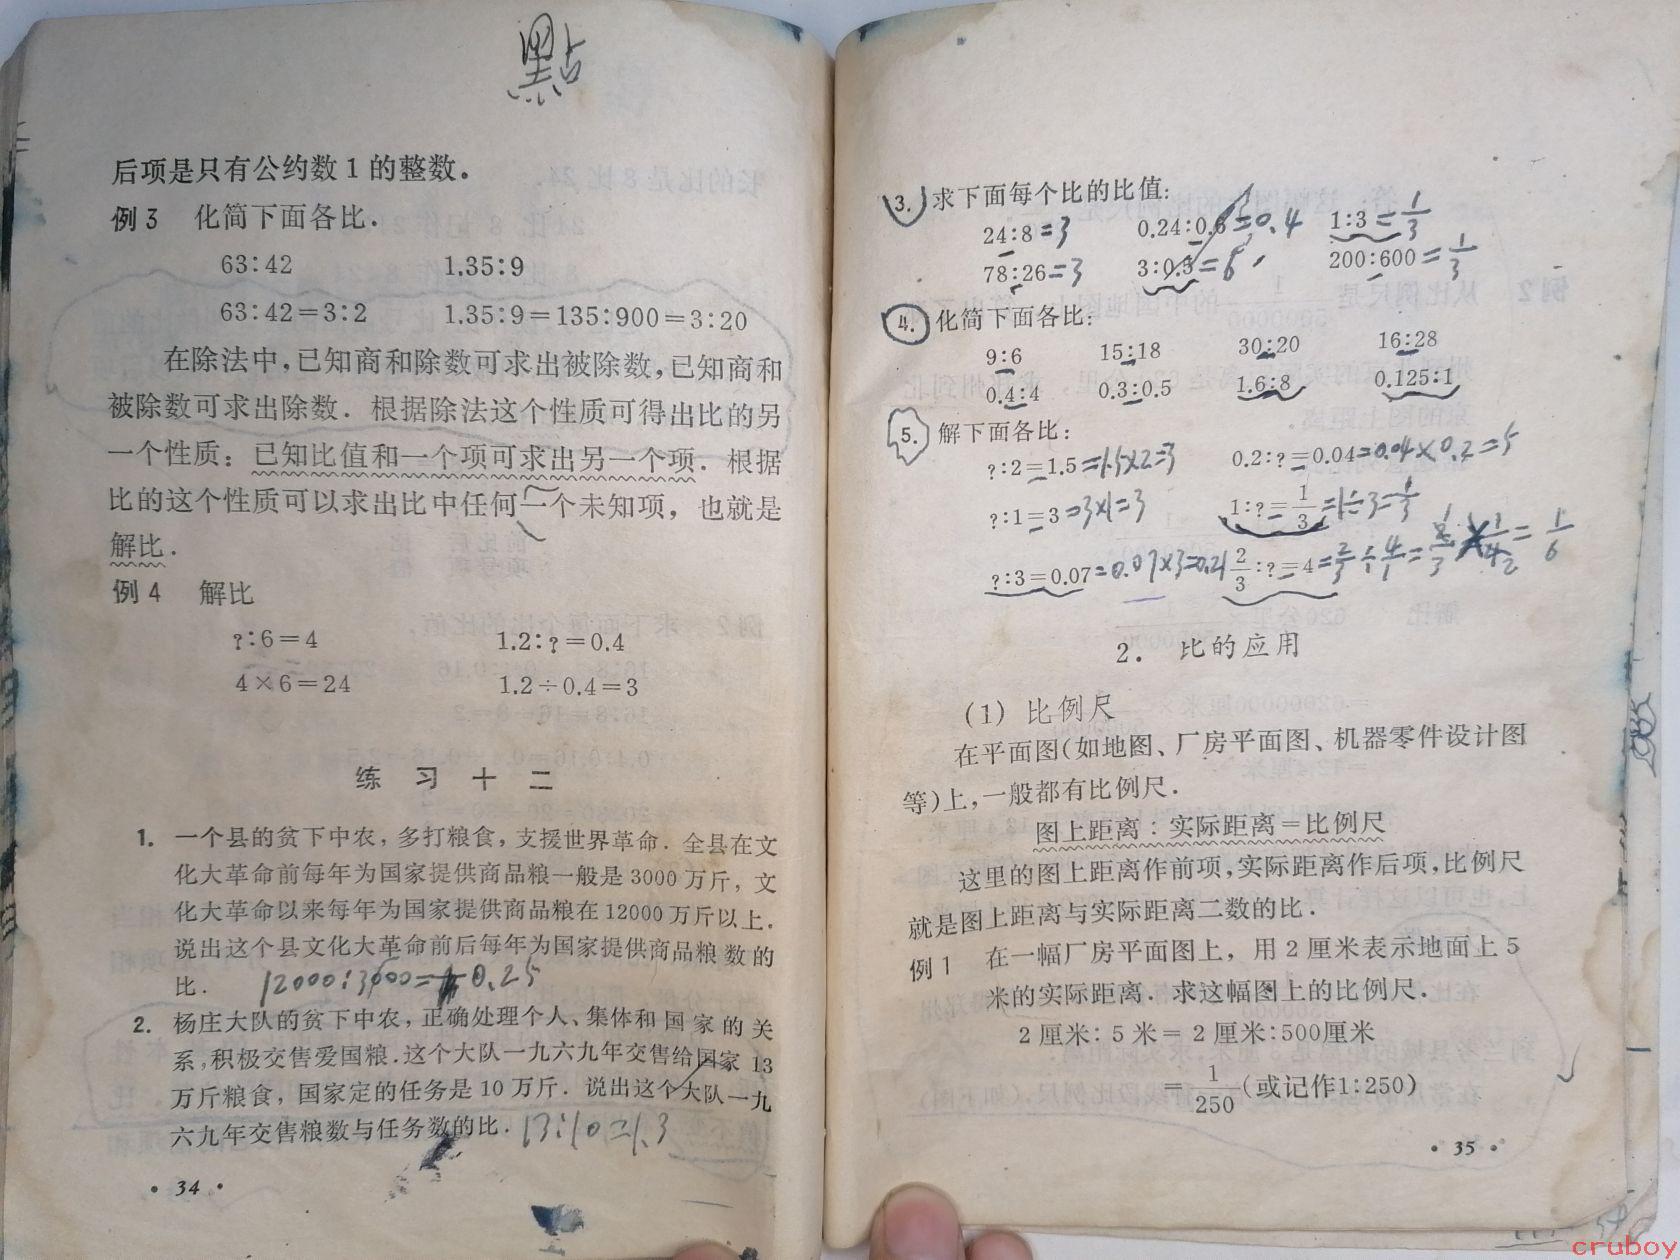 點
后项是只有公约数1的整数.
例3 化简下面各比.
63:42 1.35:9
63:42=3:2 1.35:9=135:900=3:20
在除法中,已知商和除数可求出被除数,已知商和
被除数可求出除数. 根据除法这个性质可得出比的另
一个性质: 已知比值和一个项可求出另一个项. 根据
比的这个性质可以求出比中任何一个未知项, 也就是
解比.
例4 解比
?:6=4 1.2:?=0.4
4×6=24 1.2÷0.4=3
练习十二
1. 一个县的贫下中农, 多打粮食, 支援世界革命. 全县在文
化大革命前每年为国家提供商品粮一般是3000万斤, 文
化大革命以来每年为国家提供商品粮在12000万斤以上.
说出这个县文化大革命前后每年为国家提供商品粮数的
比. 12000:3000=0.25
2. 杨庄大队的贫下中农, 正确处理个人、集体和国家的关
系,积极交售爱国粮.这个大队一九六九年交售给国家13
万斤粮食, 国家定的任务是10万斤. 说出这个大队一九
六九年交售粮数与任务数的比. 13:10=1.3
· 34 ·
3. 求下面每个比的比值:
24:8=3 0.24:0.6=0.4 1:3=1/3
78:26=3 3:0.5=6 200:600=1/3
4. 化简下面各比:
9:6 15:18 30:20 16:28
0.4:4 0.3:0.5 1.6:8 0.125:1
5. 解下面各比:
?:2=1.5=1.5×2=3 0.2:?=0.04=0.04×0.2=5
?:1=3=3×1=3 1:?=1/3=1÷3=1/3
?:3=0.07=0.07×3=0.21 2/3:?=4=2/3÷4/1= =1/6
2. 比的应用
(1) 比例尺
在平面图(如地图、厂房平面图、机器零件设计图
等)上,一般都有比例尺.
图上距离:实际距离=比例尺
这里的图上距离作前项,实际距离作后项,比例尺
就是图上距离与实际距离二数的比.
例1 在一幅厂房平面图上, 用2厘米表示地面上5
米的实际距离. 求这幅图上的比例尺.
2厘米:5米=2厘米:500厘米
=1/250(或记作1:250)
· 35 ·
cruboy